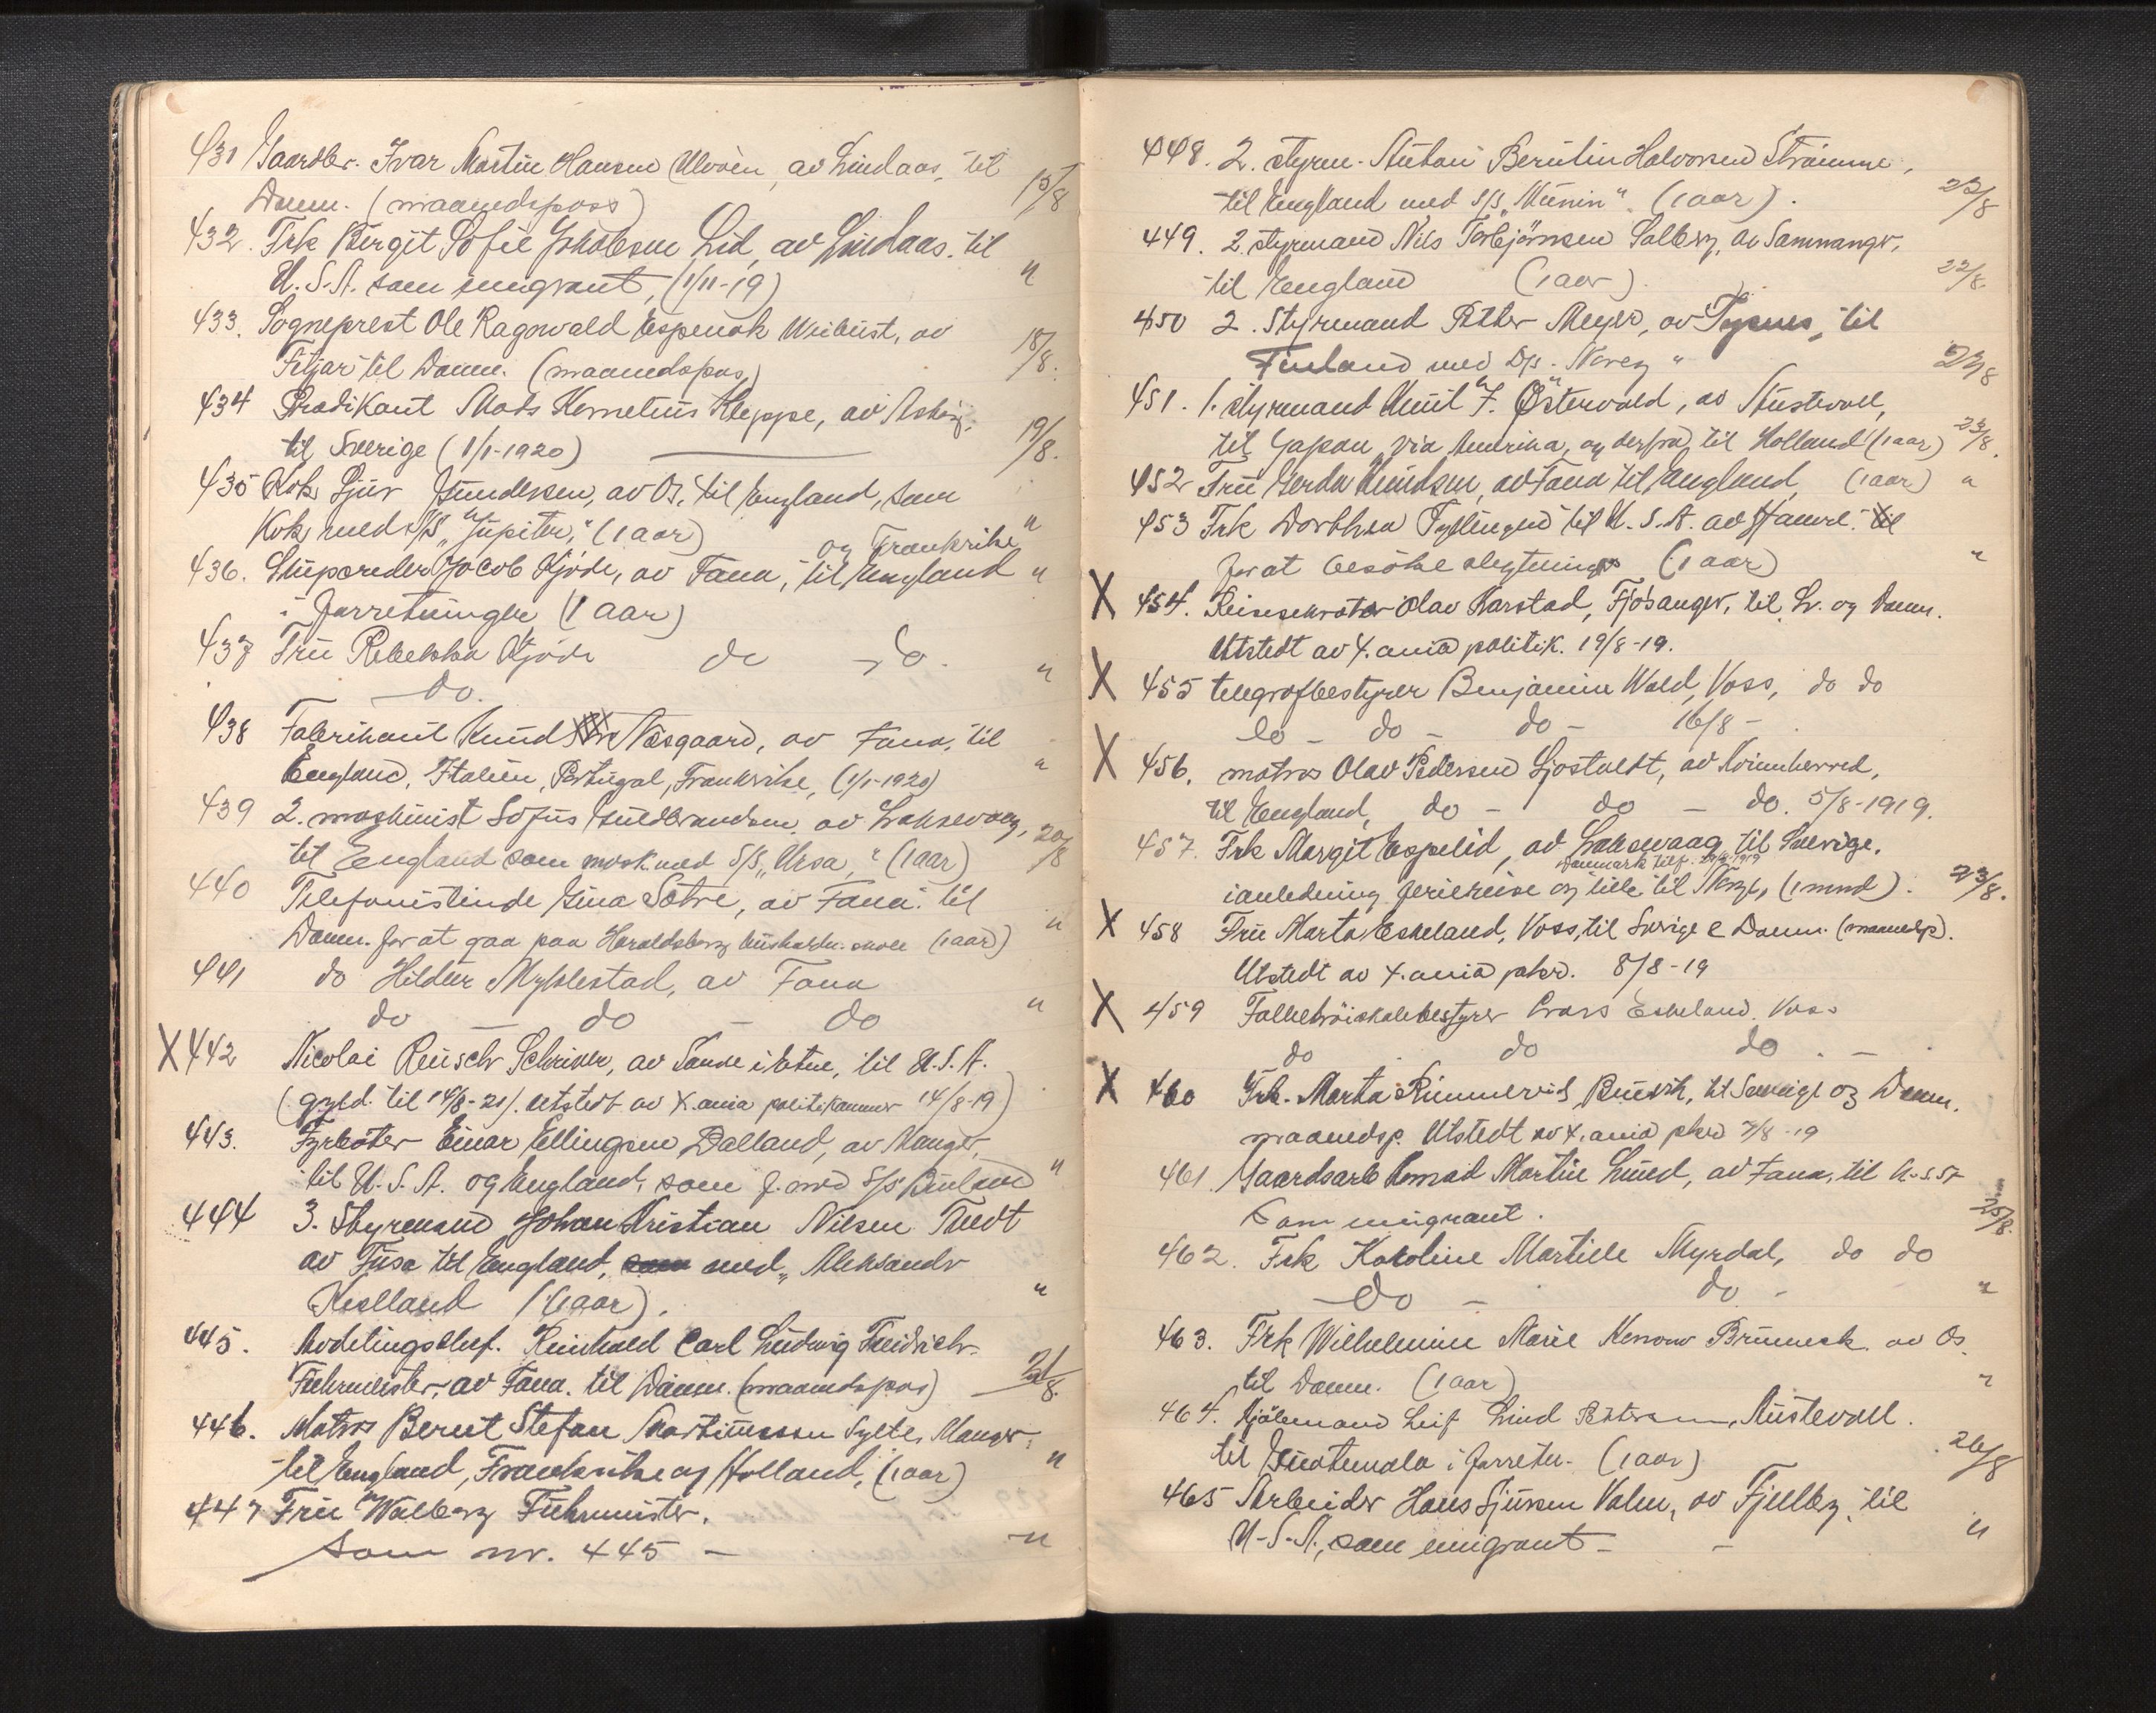 431 Gaardbr. Ivar Martin Hansen Ulvöen, av Lindaas, til
Danm. (maanedspass) 15/8
432. Frk Birgit Sofie Jakobsen Lid, av Lindaas. til
U.S.A. som emigrant, (1/11-19) "
433. Sogneprest Ole Ragnvald Espenak Weibust, av
Fitjar til Danm. (maanedspas) 18/8.
434 Prædikant Mads Kornelius Kleppe, av Askøy.
til Sverige (1/1-1920) 19/8.
435 Kok Sjur Gundersen, av Os, til England, som
Kok med S/S "Jupiter," (1 aar) "
og Frankrike
436. Skipsreder Jacob Kjöde, av Fana, til England "
i forretninger (1 aar)
437 Fru Rebekka Kjöde do do. "
do.
438 Fabrikant Knud Næsgaard, av Fana, til
England, Italien, Portugal, Frankrike, (1/1-1920) "
439 2. maskinist Sofus Guldbrandsen av Laksevaag,
til England som mask. med S/S "Ursa," (1 aar) 20/8
440 Telefonistinde Gina Sotre, av Fana. til
Danm. for at gaa paa Haraldsborg husholdn. skole (1 aar) "
441 do Hildur Myklestad, av Fana
do - do - do "
X 442 Nicolai Reusch Schriver, av Sande i Etne, til U.S.A.
(gyld. til 14/8-21). Utstedt av X.ania politikammer 14/8-19)
443. Fyrböter Einar Ellingsen Dalland, av Manger,
til U.S.A. og England, som f. med S/S "
444 3. Styrmand Johan Kristian Nilsen Tvedt
av Fusa til England, med "Aleksander
Kielland" (1 aar). "
445. Avdelingschef. Reinhold Carl Ludwig Freidrich
Fuhrmeister, av Fana. til Danm. (maanedspas) 21/8.
446. Matros Berent Stefan Martinussen Sylte, Manger,
til England, Frankrike og Holland, (1 aar) "
447 Fru Walborg Fuhrmeister.
som nr. 445 - "
448. 2. styrm. Berntin Halvorsen Strömme,
til England med S/S "Munin". (1 aar). 22/8
449. 2. styrmand Nils Torbjörnsen Solberg, av Samnanger,
til England (1 aar). 22/8.
450 2. Styrmand Petter Meyer, av Tysnes, til
Finland med D/S "Noreg" 23/8
451. 1. styrmand Emil J. Östervold, av Austevoll,
til Japan via Amerika, og derfra til Holland (1 aar) 23/8.
452 Fru Gerda Knudsen, av Fana til England, (1 aar) "
453 Frk Dorthea Tyllingen til U.S.A. av Hamre. til
for at besöke slegtninger (1 aar) "
X 454. Reisesekretær Olav Harstad, Fjösanger, til Sv. og Danm.
Utstedt av X.ania politik. 19/8-19.
X 455 telegrafbestyrer Benjamin Wold, Voss, do do
do - do - do - 16/8 -
X 456. matros Olav Pedersen Ljostveit, av Kvinnherred,
til England, do - do - do. 5/8-1919.
457. Frk Margit Espelid, av Laksevaag til Sverige.
Danmark tilf. 29/8-1919
i anledning feriereise og tilb. til Norge, (1 mnd). 23/8.
X 458 Fru Marta Eskeland, Voss, til Sverige & Danm. (maanedsp).
Utstedt av X.ania pkr. 8/8-19
X 459 Folkehöiskolebestyrer Lars Eskeland. Voss
do do do . -
X 460 Frk. Marta Rimmereid, Bremnes, til Sverige og Danm.
maanedsp. Utstedt av X.ania pkr 7/8-19
461. Gaardsarb Konrad Martin Lund, av Fana, til U.S.A
som emigrant. 25/8.
462. Frk Karoline Martille Myrdal, do do
do - do - "
463. Frk Wilhelmine Marie Konow Brunnech. av Os.
til Danm. (1 aar) "
464. Kjöbmand Leif Lind Petersen, Austevoll.
til Guatemala i forretn. (1 aar) 26/8
465 Arbeider Hans Sjursen Valen, av Fjelberg, til
U.S.A., som emigrant - - "